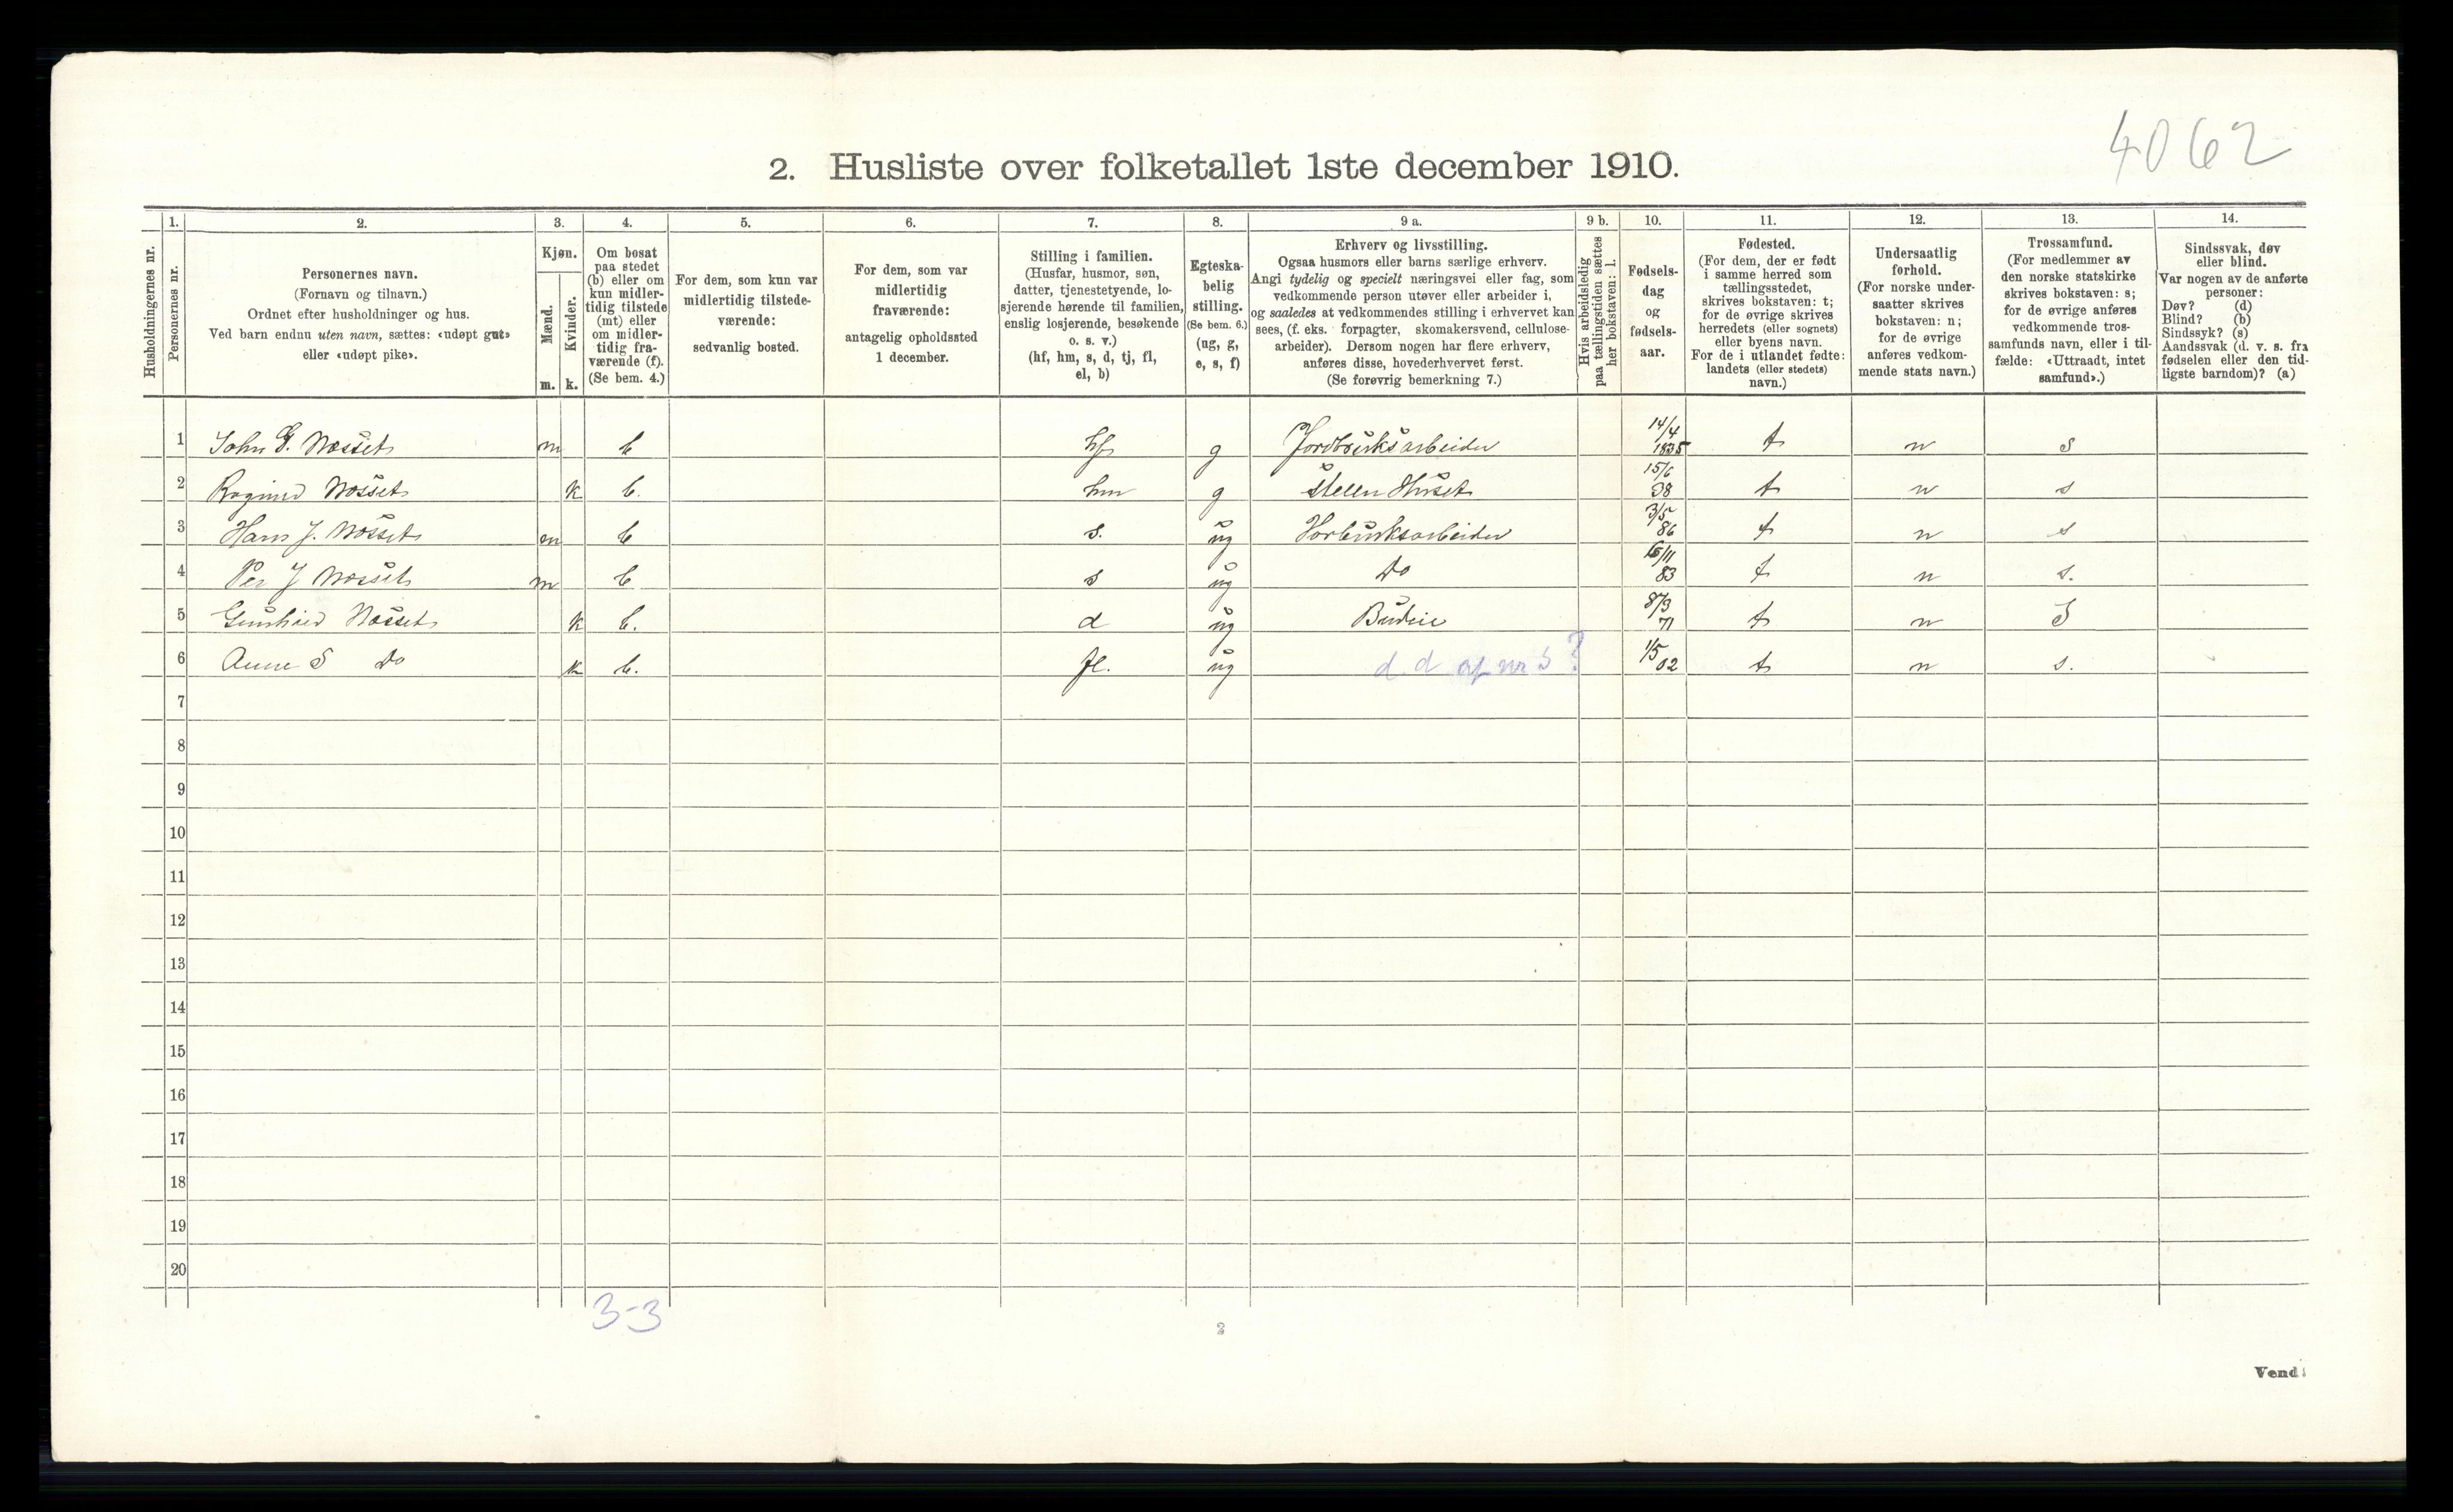 4062
2. Husliste over folketallet 1ste december 1910.
Husholdningernes nr.
1.
Personernes nr.
2.
Personernes navn.
(Fornavn og tilnavn.)
Ordnet efter husholdninger og hus.
Ved barn endnu uten navn, sættes: «udøpt gut»
eller «udøpt pike».
3.
Kjøn.
Mænd.
Kvinder.
m. k.
4.
Om bosat
paa stedet
(b) eller om
kun midler-
tidig tilstede
(mt) eller
om midler-
tidig fra-
værende (f).
(Se bem. 4.)
5.
For dem, som kun var
midlertidig tilstede-
værende:
sedvanlig bosted.
6.
For dem, som var
midlertidig
fraværende:
antagelig opholdssted
1 december.
7.
Stilling i familien.
(Husfar, husmor, søn,
datter, tjenestetyende, lo-
sjerende hørende til familien,
enslig losjerende, besøkende
o. s. v.)
(hf, hm, s, d, tj, fl,
el, b)
8.
Egteska-
belig
stilling.
(Se bem. 6.)
(ug, g,
e, s, f)
9 a.
Erhverv og livsstilling.
Ogsaa husmors eller barns særlige erhverv.
Angi tydelig og specielt næringsvei eller fag, som
vedkommende person utøver eller arbeider i,
og saaledes at vedkommendes stilling i erhvervet kan
sees, (f. eks. forpagter, skomakersvend, cellulose-
arbeider). Dersom nogen har flere erhverv,
anføres disse, hovederhvervet først.
(Se forøvrig bemerkning 7.)
9 b.
Hvis arbeidsledig
paa tællingstiden sættes
her bokstaven: l.
10.
Fødsels-
dag
og
fødsels-
aar.
11.
Fødested.
(For dem, der er født
i samme herred som
tællingsstedet,
skrives bokstaven: t;
for de øvrige skrives
herredets (eller sognets)
eller byens navn.
For de i utlandet fødte:
landets (eller stedets)
navn.)
12.
Undersaatlig
forhold.
(For norske under-
saatter skrives
bokstaven: n;
for de øvrige
anføres vedkom-
mende stats navn.)
13.
Trossamfund.
(For medlemmer av
den norske statskirke
skrives bokstaven: s;
for de øvrige anføres
vedkommende tros-
samfunds navn, eller i til-
fælde: «Uttraadt, intet
samfund».)
14.
Sindssvak, døv
eller blind.
Var nogen av de anførte
personer:
Døv? (d)
Blind? (b)
Sindssyk? (s)
Aandssvak (d. v. s. fra
fødselen eller den tid-
ligste barndom)? (a)
1 John G. Næsset m b hf g Jordbruksarbeider 14/4 1835 t n s
2 Ragnild Næsset k b. hm g Steller Huset 15/6 38 t n s
3 Hans J. Næsset m b s. ug Jorbruksarbeider 3/5 86 t n s
4 Per J Næsset m b s ug Do 15/11 83 t n s.
5 Gunhild Næsset k b. d ug Budeie 8/3 71 t n S
6 Anne S Do k b. fl. ug d. d af nr 5 ? 1/5 02 t n s.
7
8
9
10
11
12
13
14
15
16
17
18
19
20
3-3
2
Vend!